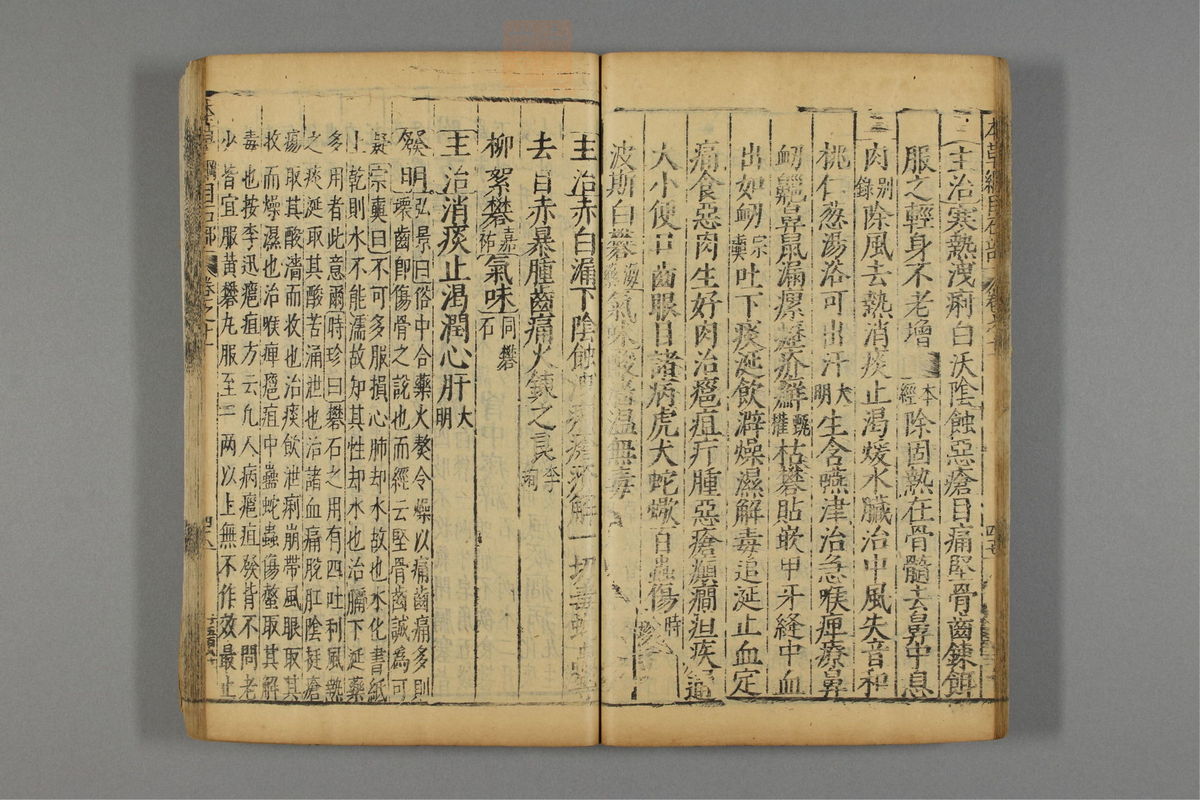 主治寒熱洩痢白沃陰蝕惡瘡目痛堅骨齒鍊餌
服之輕身不老增 本經 除固熱在骨髓去鼻中息
肉 別錄 除風去熱消痰止渴煖水臟治中風失音和
桃仁葱湯浴可出汗 大明 生含嚥津治急喉痺療鼻
衂齆鼻鼠漏瘰癧疥癬 甄權 枯礬貼嵌甲牙縫中血
出如衂 宗奭 吐下痰涎飲澼燥濕解毒追涎止血定
痛食惡肉生好肉治癰疽疔腫惡瘡癲癇疸疾通
大小便口齒眼目諸病虎犬蛇蠍百蟲傷 時珍
波斯白礬 海藥 氣味酸澀溫無毒
主治赤白漏下陰蝕 解一切毒蛇
去目赤暴腫齒痛火鍊之良 李珣
柳絮礬 嘉祐 氣味 同礬石
主治消痰止渴潤心肝 大明
發明 弘景曰俗中合藥火熬令燥以療齒痛多則
壞齒卽傷骨之說也而經云堅骨齒誠為可
疑 宗奭曰不可多服損心肺却水故也水化書紙
上乾則水不能濡故知其性却水也治膈下涎藥
多用者此意爾 時珍曰礬石之用有四吐利風熱
之痰涎取其酸苦涌泄也治諸血痛脫肛陰挺瘡
瘍取其酸濇而收也治痰飲泄痢崩帶風眼取其
收而燥濕也治喉痺癰疽中蠱蛇蟲傷螫取其解
毒也按李迅癰疽方云凡人病癰疽發背不問老
少皆宜服黃礬丸服至一兩以上無不作效最止